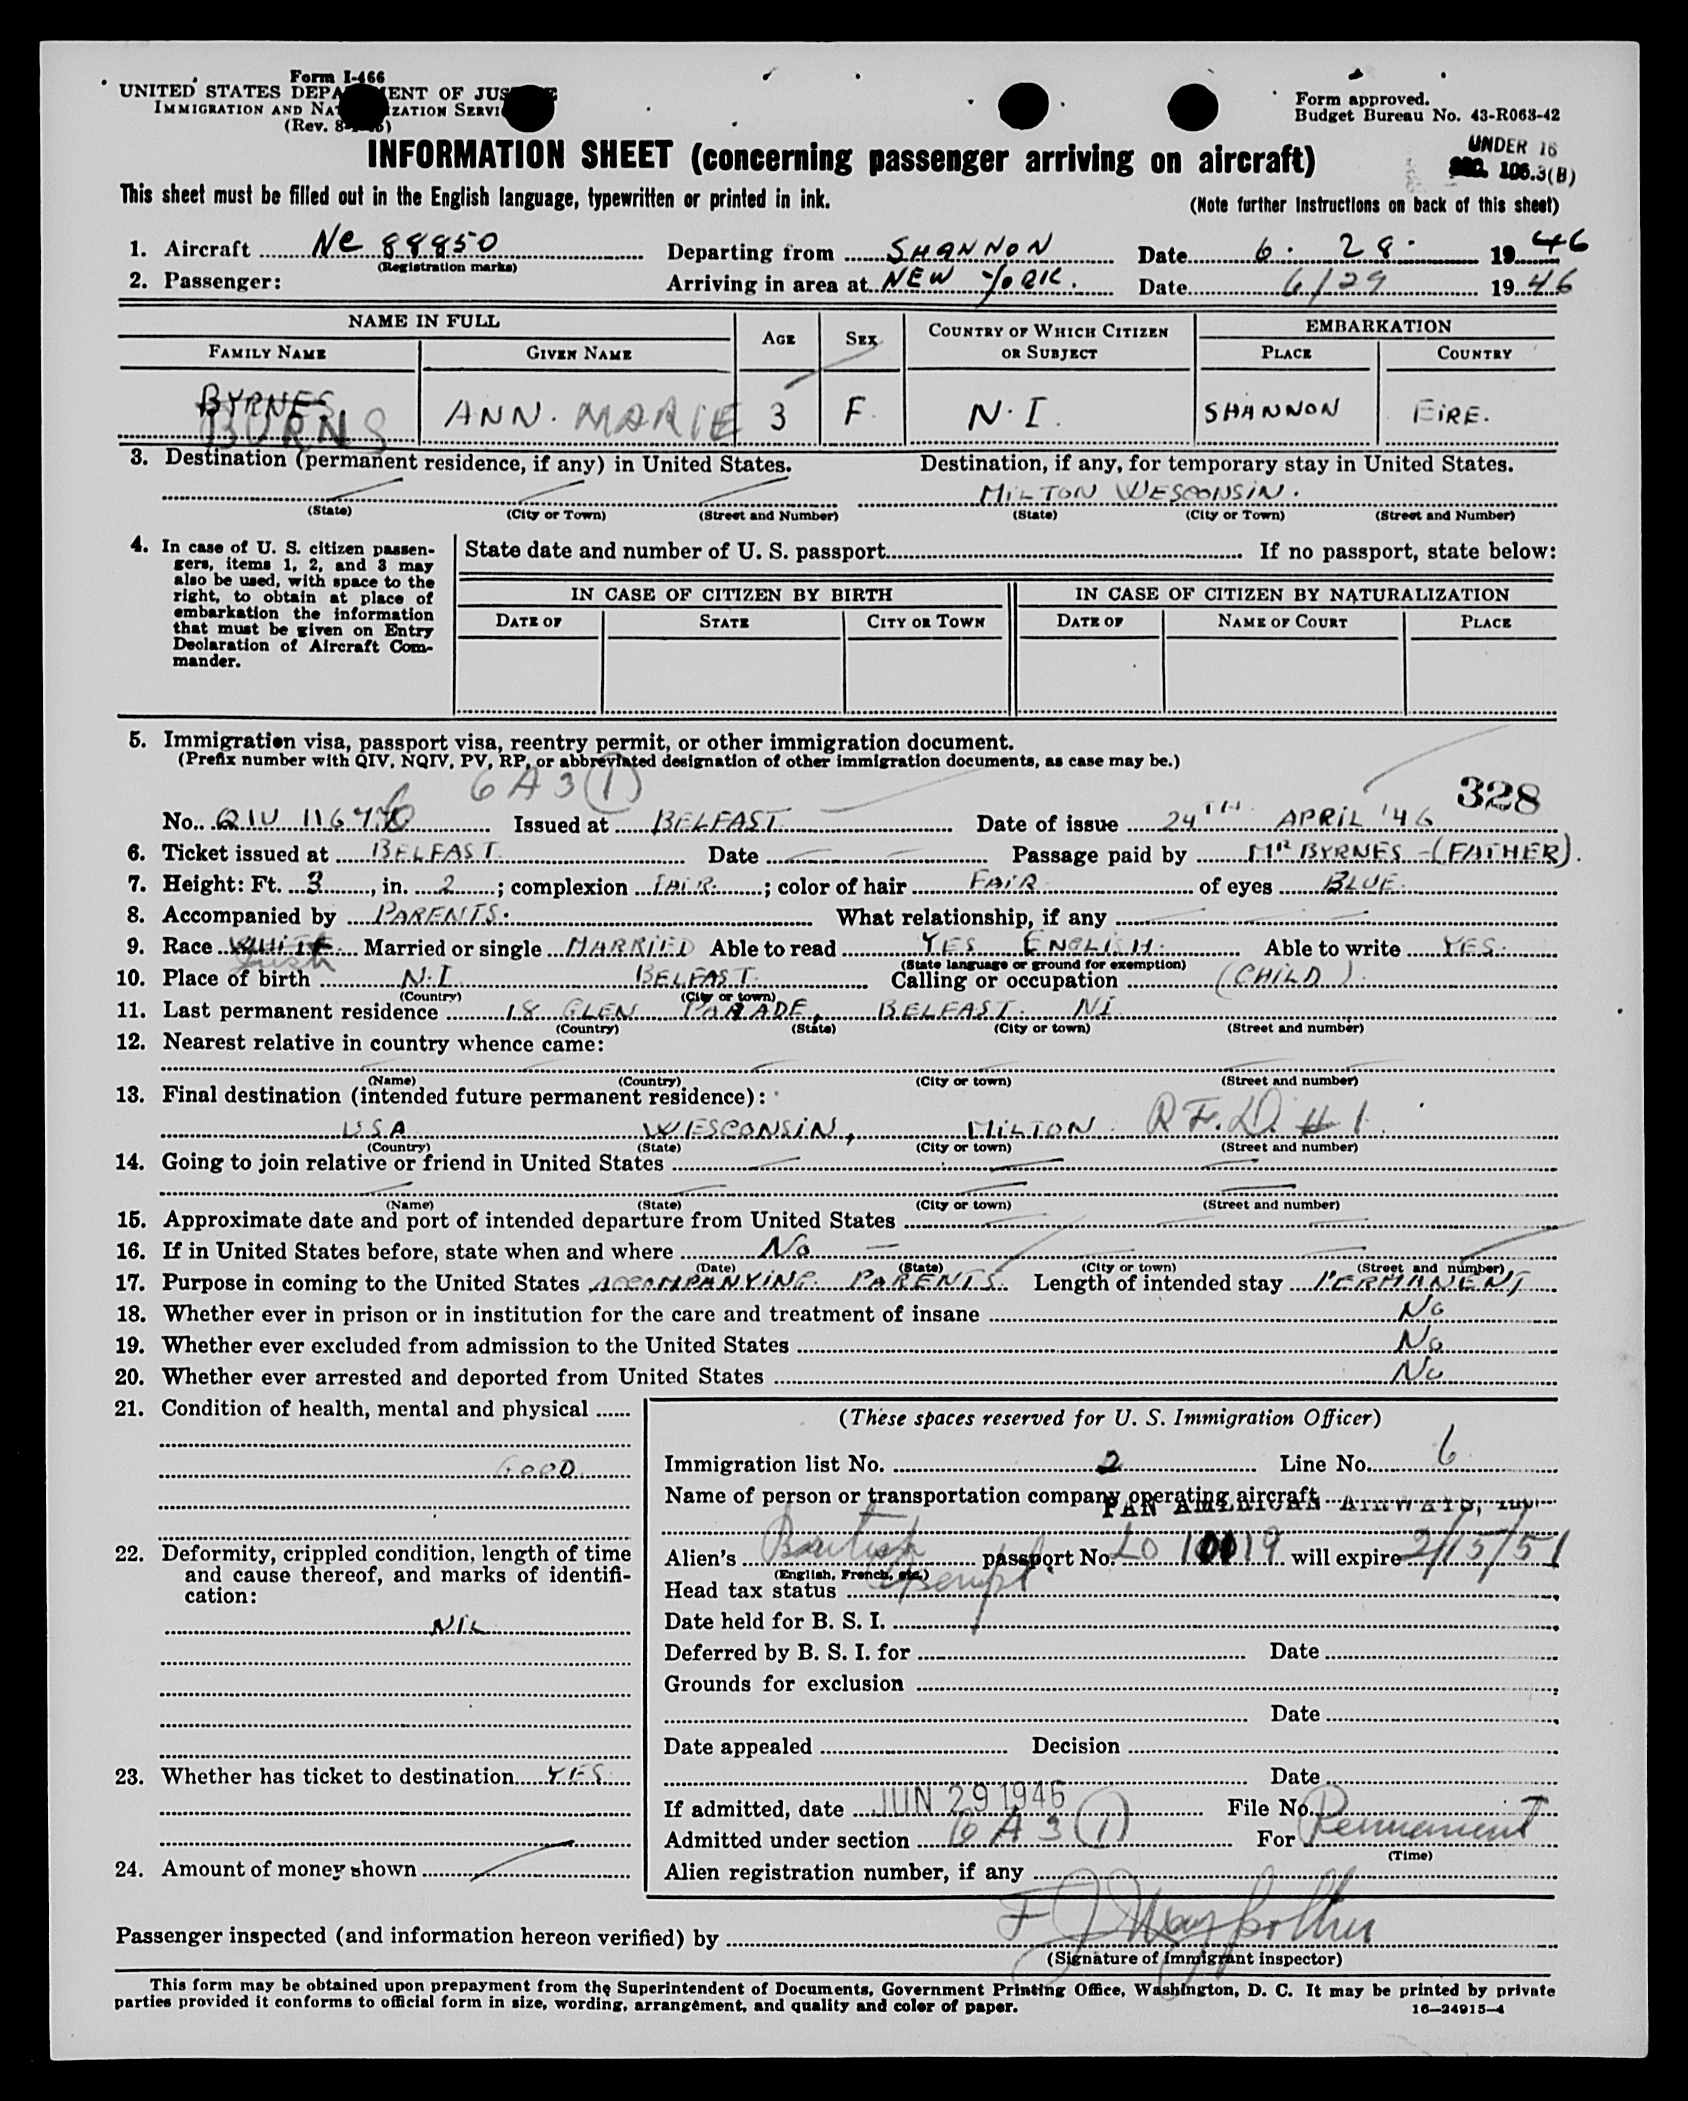 Form I-466
UNITED STATES DEPARTMENT OF JUSTICE
IMMIGRATION AND NATURALIZATION SERVICE
(Rev.
Form approved.
Budget Bureau No. 43-R063-42
UNDER 16
SEC. 106.3(B)
INFORMATION SHEET (concerning passenger arriving on aircraft)
This sheet must be filled out in the English language, typewritten or printed in ink.
(Note further Instructions on back of this sheet)
1. Aircraft NC 88850 Departing from SHANNON Date 6. 28. 1946
(Registration marks)
2. Passenger: Arriving in area at NEW YORK. Date 6/29 1946
NAME IN FULL AGE SEX COUNTRY OF WHICH CITIZEN OR SUBJECT EMBARKATION
FAMILY NAME GIVEN NAME PLACE COUNTRY
BYRNES
BURNS ANN. MARIE 3 F. N.I. SHANNON EIRE.
3. Destination (permanent residence, if any) in United States. Destination, if any, for temporary stay in United States.
MILTON WESCONSIN.
(State) (City or Town) (Street and Number) (State) (City or Town) (Street and Number)
4. In case of U. S. citizen passengers, items 1, 2, and 3 may
also be used, with space to the
right, to obtain at place of
embarkation the information
that must be given on Entry
Declaration of Aircraft Commander.
State date and number of U. S. passport If no passport, state below:
IN CASE OF CITIZEN BY BIRTH IN CASE OF CITIZEN BY NATURALIZATION
DATE OF STATE CITY OR TOWN DATE OF NAME OF COURT PLACE
5. Immigration visa, passport visa, reentry permit, or other immigration document.
(Prefix number with QIV, NQIV, PV, RP, or abbreviated designation of other immigration documents, as case may be.)
6 A 3 (1)
328
No. QIV 11676 Issued at BELFAST Date of issue 24TH APRIL '46
6. Ticket issued at BELFAST Date Passage paid by MR BYRNES - (FATHER).
7. Height: Ft. 3, in. 2; complexion FAIR; color of hair FAIR of eyes BLUE.
8. Accompanied by PARENTS. What relationship, if any
9. Race WHITE Irish Married or single MARRIED Able to read YES ENGLISH. Able to write YES.
(State language or ground for exemption)
10. Place of birth N.I. BELFAST. Calling or occupation (CHILD).
(Country) (City or town)
11. Last permanent residence 18 GLEN PARADE, BELFAST. NI.
(Country) (State) (City or town) (Street and number)
12. Nearest relative in country whence came:
(Name) (Country) (City or town) (Street and number)
13. Final destination (intended future permanent residence):
USA WESCONSIN, MILTON R.F.D. #1.
(Country) (State) (City or town) (Street and number)
14. Going to join relative or friend in United States
(Name) (State) (City or town) (Street and number)
15. Approximate date and port of intended departure from United States
16. If in United States before, state when and where No
(Date) (State) (City or town) (Street and number)
17. Purpose in coming to the United States ACCOMPANYING PARENTS. Length of intended stay PERMANENT
18. Whether ever in prison or in institution for the care and treatment of insane No
19. Whether ever excluded from admission to the United States No
20. Whether ever arrested and deported from United States No
21. Condition of health, mental and physical
GOOD
22. Deformity, crippled condition, length of time
and cause thereof, and marks of identification:
NIL
23. Whether has ticket to destination YES
24. Amount of money shown
(These spaces reserved for U. S. Immigration Officer)
Immigration list No. 2 Line No. 6
Name of person or transportation company operating aircraft
PAN AMERICAN AIRWAYS, INC.
Alien's British passport No. LO 10019 will expire 2/15/51
(English, French, etc.)
Head tax status Exempt
Date held for B. S. I.
Deferred by B. S. I. for Date
Grounds for exclusion
Date
Date appealed Decision
Date
If admitted, date JUN 29 1946 File No.
Admitted under section 6 A 3 (1) For Permanent
(Time)
Alien registration number, if any
Passenger inspected (and information hereon verified) by
(Signature of immigrant inspector)
This form may be obtained upon prepayment from the Superintendent of Documents, Government Printing Office, Washington, D. C. It may be printed by private
parties provided it conforms to official form in size, wording, arrangement, and quality and color of paper.
16—24915-4